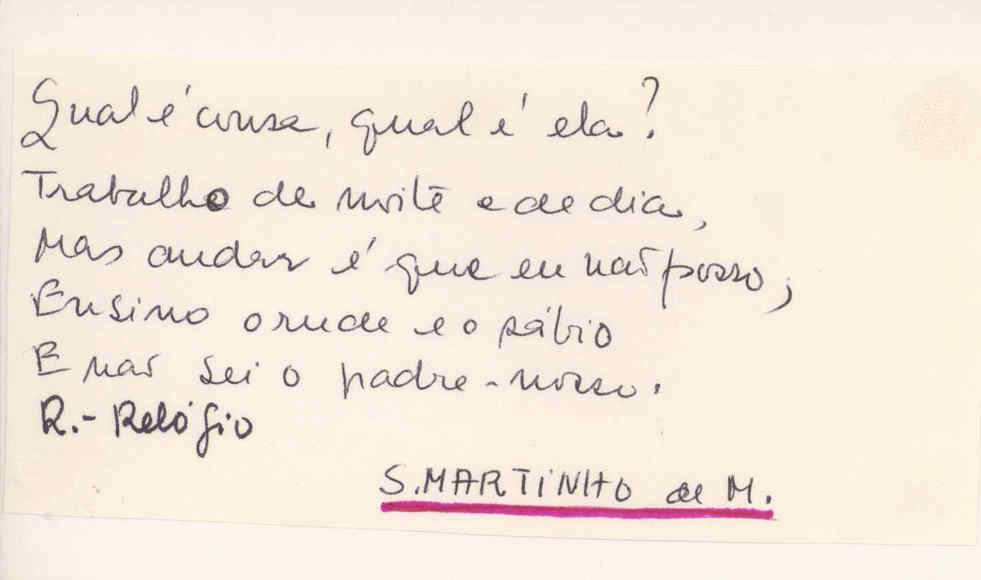 Qual é cousa, qual é ela?
Trabalho de noite e de dia,
Mas andar é que eu não posso;
Ensino o rude e o sábio
E não sei o padre-nosso.
R.- Relógio
S. MARTINHO de M.